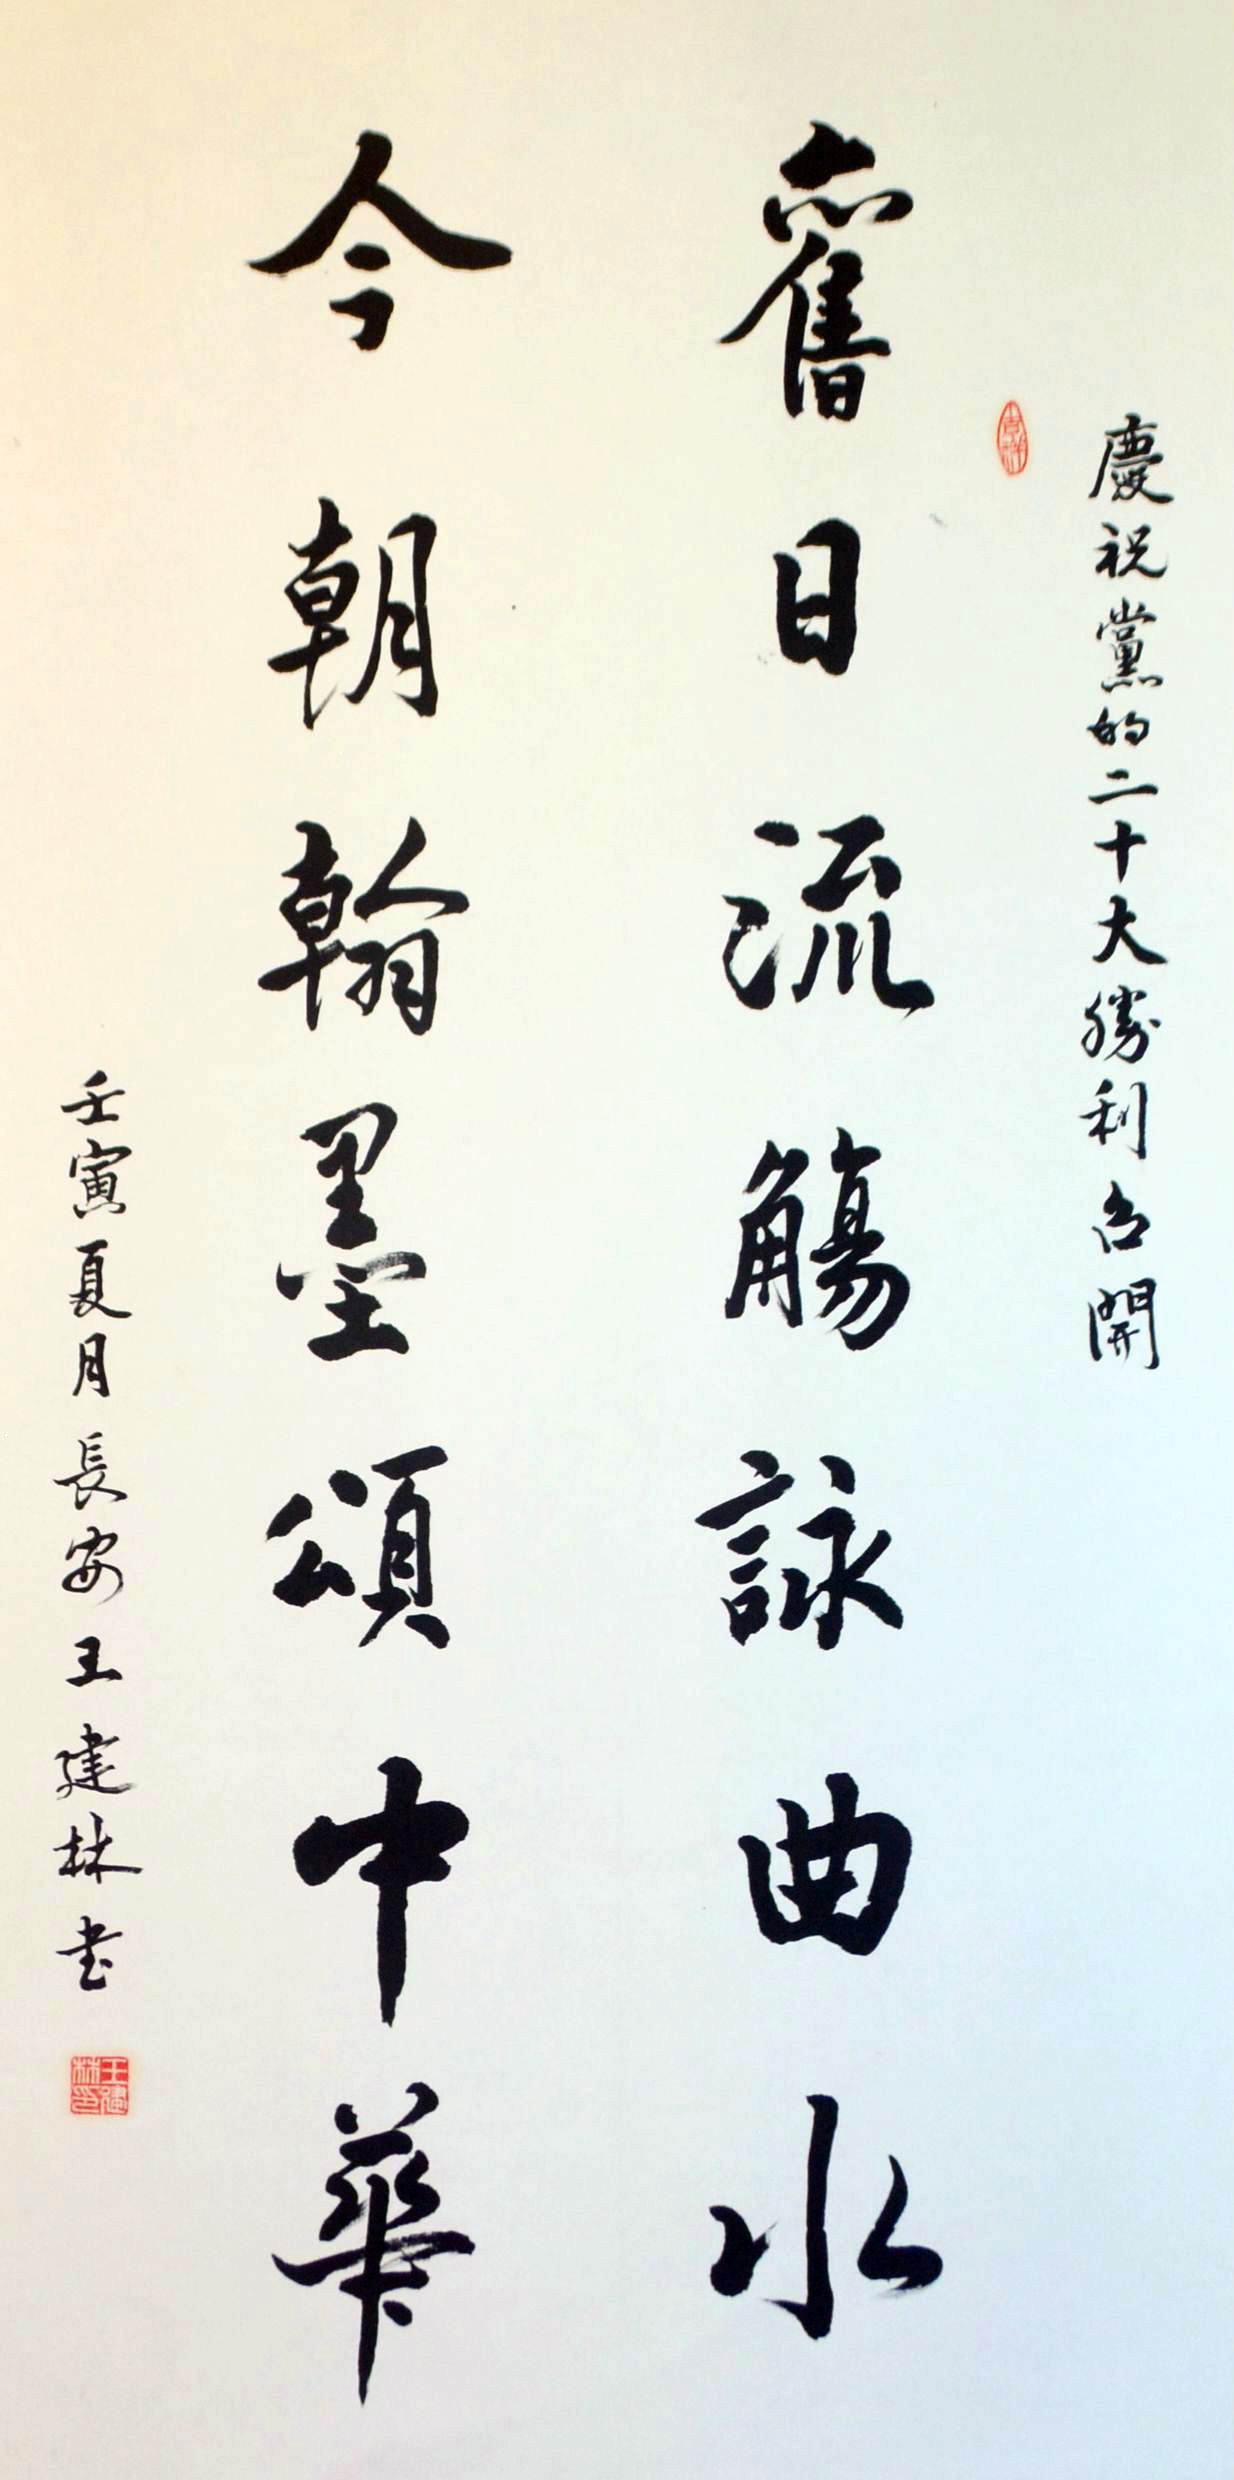 慶祝黨的二十大勝利召開
吉祥
舊日流觴詠曲水
今朝翰墨頌中華
壬寅夏月長安王建林书
王建林印